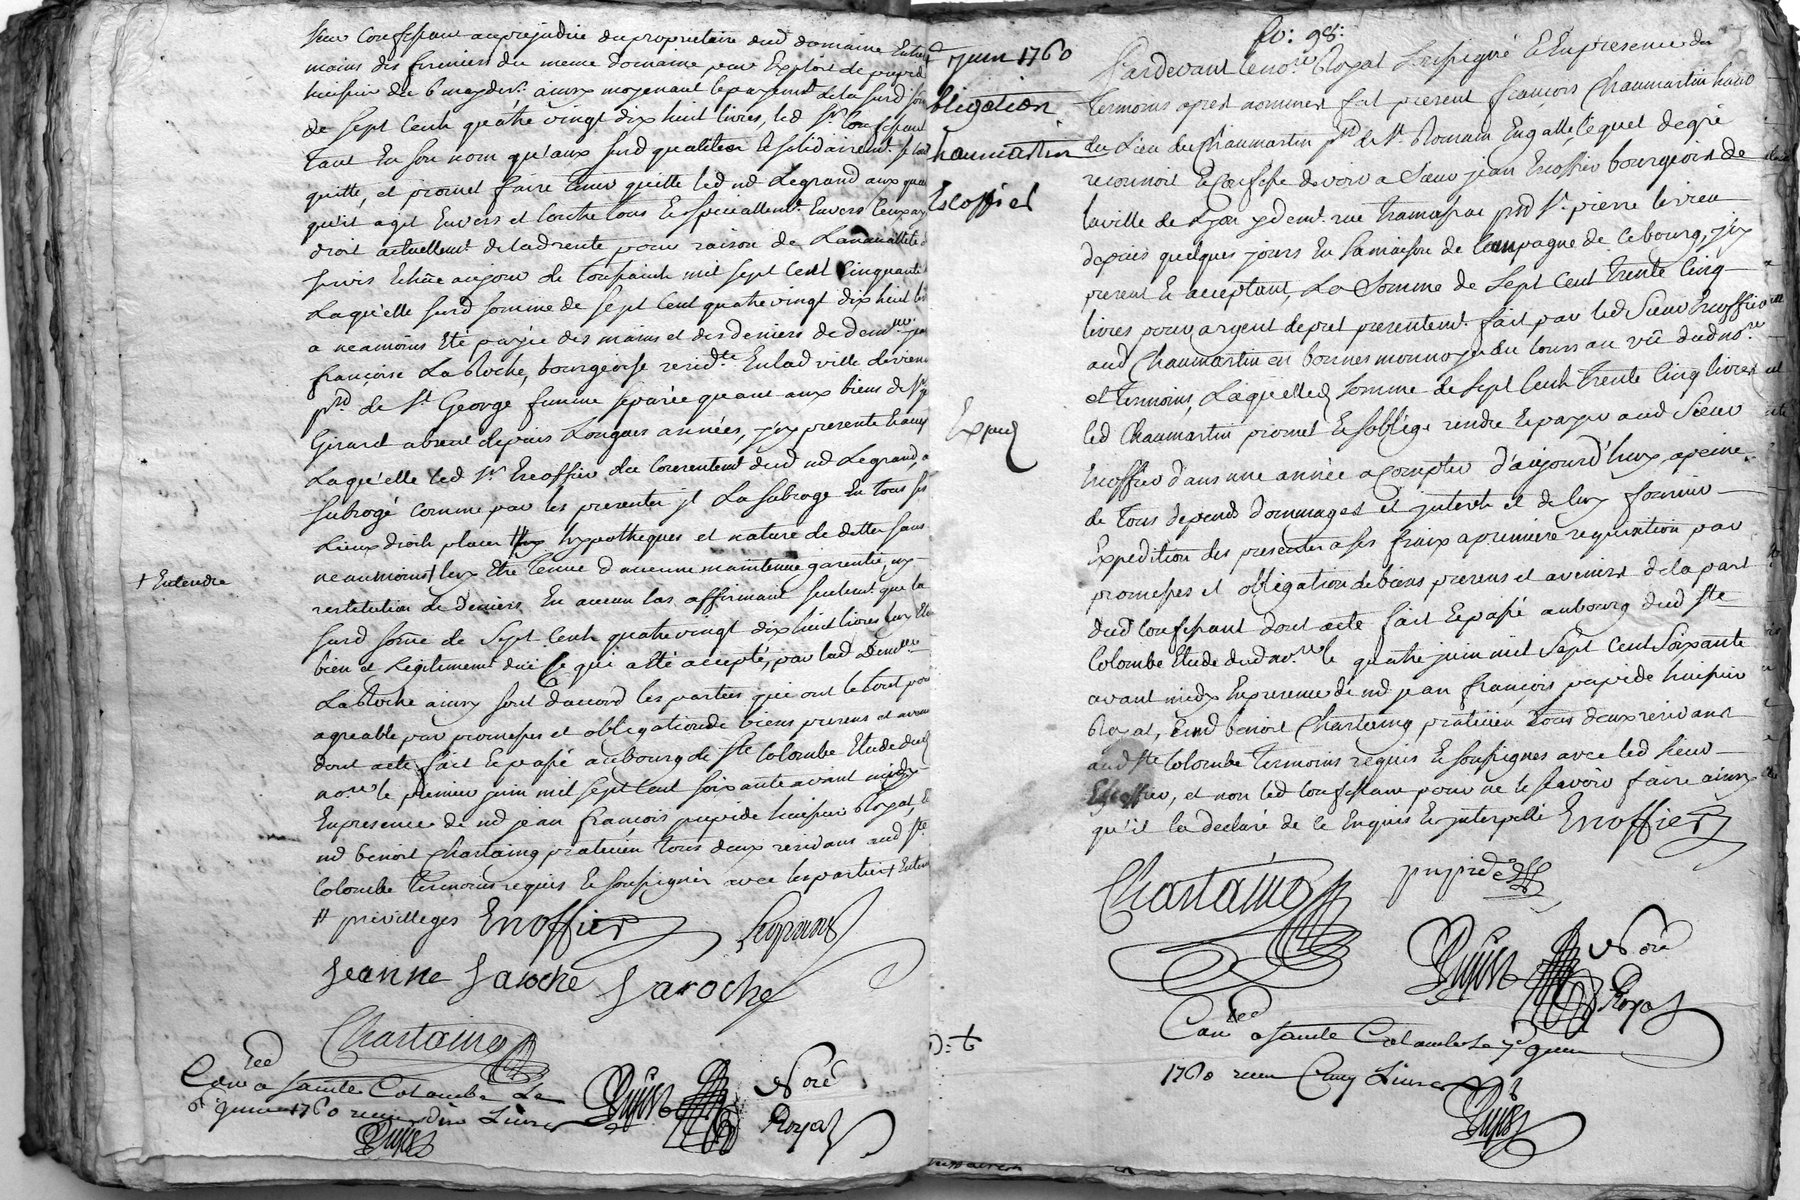 sieur Confessant au prejudice du proprietaire dud domaine Entre
mains des fermiers du meme domaine par Exploit de pupide
huissier du 6e may der. ainsy moyenant le payemt. de la surd. som
de sept Cent quatre vingt dix huit livres, led Sr. Confessant
tant En son nom qu'aux surd qualites et solidairemt. se tient
quitte, et promet faire tenir quitte led md Legrand aux qua
qu'il agit Envers et Contre tous Et specialemt. Envers Ceux ay
droit actuellemt. de lad rente pour raison de
servis Echûe au jour de toussaints mil sept Cent Cinquante
Laquelle surd somme de sept Cent quatre vingt dix huit liv
a neamoins Eté payée des mains et des deniers de demlle.
françoise La Roche, bourgeoise residte. En lad ville de vienne
psse. de St George femme séparée quant aux biens de Sr
Girard absent depuis Longues années, jcy presente
Laquelle led Sr. Escoffier du Consentemt. dud md Legrand, a
subrogé comme par les presentes jl La subroge En tous ses
Lieux droits places # hypotheques et nature de dettes sans
neanmoins + luy Etre tenue d'aucune maintenue garentie, ny
+ Entendre
restitution de deniers En aucun Cas affirmant seulemt. que la
surd some de Sept Cents quatre vingt dix huit livres luy Etoit
bien et Legitimemt. düe Ce qui a Eté accepté, par lad demlle.
La Roche ainsy sont d'accord les parties qui ont le tout pour
agreable par promesses et obligation de biens presens et avenir
dont acte fait Et passé au bourg de Ste Colombe Etude dud
nore. le premier juin mil sept Cent soixante avant midy
En presence de md jean françois pupide huissier Royal, Et
md benoit Chastaing praticien tous deux residans aud Ste
Colombe temoins requis Et soussignés avec les parties + Enten
# privilleges Escoffier Legrand
Jeanne Laroche Laroche
Chastaing
Conlleé a sainte Colombe Le
6e juin 1760 reçu dix Livres
Dupuis
Dupuis Nore
Royal
fo: 98:
4 juin 1760
bligation
haumartin
Escoffier
Expedié
Pardevant le nore. Royal soussigné Et En presence des
temoins apres nommes fut present françois Chaumartin
du Lieu de Chaumartin psse. de St. Romain En galle, lequel de gré
reconnoit Et Confesse devoir a Sieur jean Escoffier bourgeois de
la ville de Lyon y demt. rue tramassac psse St. pierre le vieu
depuis quelques jours En sa maison de Campagne de Ce bourg, jcy
present Et acceptant, La Somme de Sept Cent trente Cinq
livres pour argent de pret presentemt. fait par led Sieur Escoffier
aud Chaumartin en bonnes monnoyes du Cours au vû dud nore.
et temoins, Laquelle somme de Sept Cents trente Cinq livres
led Chaumartin promet Et s'oblige rendre Et payer aud Sieur
Escoffier d'ans une année a Compter d'aujourd'huy, a peine
de tous depends dommages et jnterets et de luy fournir
Expedition des presentes a ses fraix a premiere requisition par
promesses et obligation de biens presens et avenirs de la part
dud Confessant dont acte fait Et passé au bourg dud Ste
Colombe Etude dud nore. le quatre juin mil Sept Cent Soixante
avant midy En presence de md jean françois pupide huissier
Royal, Et md benoit Chastaing praticien tous deux residans
aud Ste Colombe temoins requis Et soussignes avec led sieur
Escoffier, et non led Confessant pour ne le sçavoir faire ainsy
qu'il la declaré de Ce Enquis Et jnterpellé Escoffier
Chastaing pupide
Dupuis Nore
Royal
Conlleé a sainte Colombe Le 7e juin
1760 reçu Cinq Livres
Dupuis